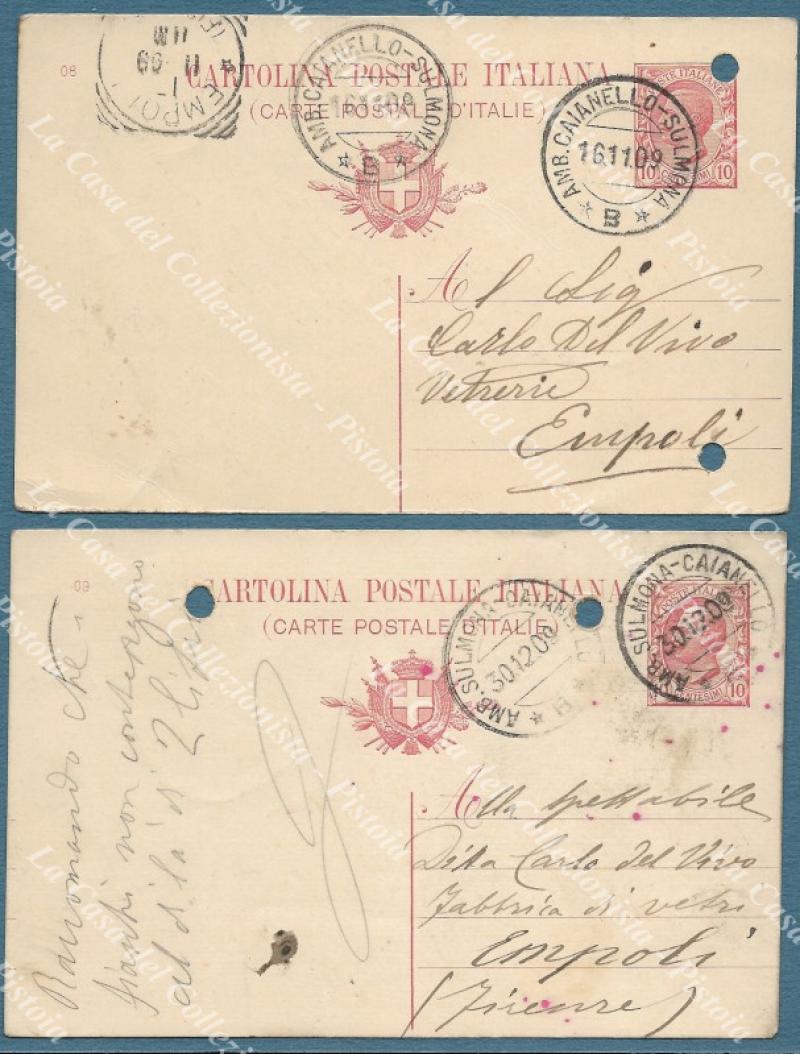 08
CARTOLINA POSTALE ITALIANA
(CARTE POSTALE D'ITALIE)
EMPOLI
11 09
AMB. CAIANELLO-SULMONA
16.11.09
B
AMB. CAIANELLO-SULMONA
16.11.09
B
POSTE ITALIANE
10 CENTESIMI 10
Al Sig
Carlo Del Vivo
Vetrerie
Empoli
09
CARTOLINA POSTALE ITALIANA
(CARTE POSTALE D'ITALIE)
AMB. SULMONA-CAIANELLO
30.12.09
B
AMB. SULMONA-CAIANELLO
30.12.09
POSTE ITALIANE
CENTESIMI 10
Raccomando che i
fiaschi non contengano
al di là di 2 litri
Alla spettabile
Ditta Carlo del Vivo
Fabbrica di vetri
Empoli
(Firenze)
La Casa del Collezionista - Pistoia